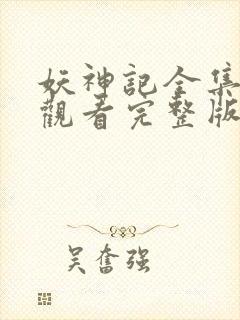 妖神記全集
觀看完整版
吴奮强